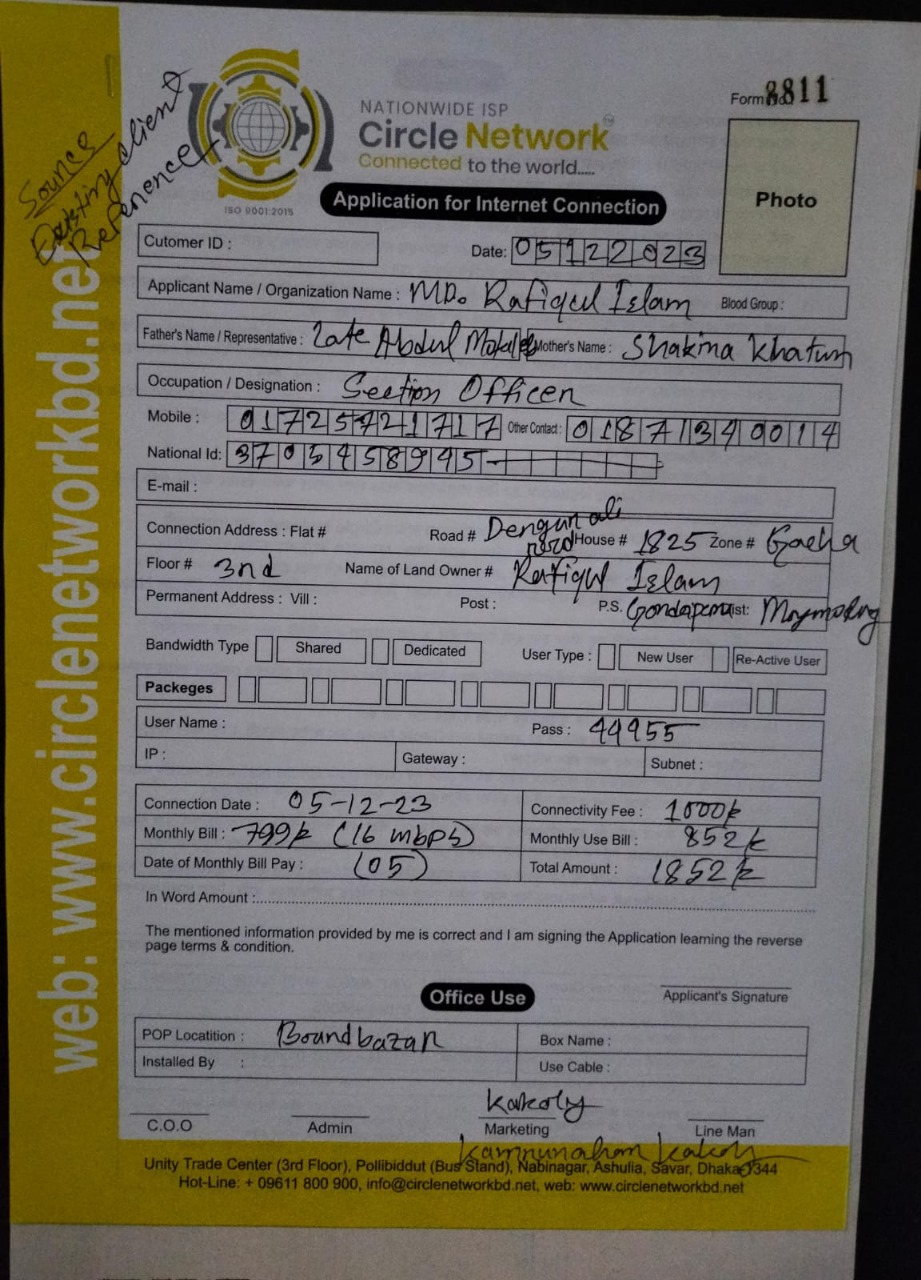 Source
Existing client
Reference
NATIONWIDE ISP
Circle Network
Connected to the world.....
ISO 9001:2015
Form 8811
Photo
Application for Internet Connection
Cutomer ID :
Date: 05122023
Applicant Name / Organization Name : MD. Rafiqul Islam Blood Group :
Father's Name / Representative : Late Abdul Mother's Name : Shakina Khatun
Occupation / Designation : Section Officer
Mobile : 01725721717 Other Contact : 01871340014
National Id: 3705458945
E-mail :
Connection Address : Flat # Road # ali House # 1825 Zone #
Floor # 3nd Name of Land Owner # Rafiqul Islam
Permanent Address : Vill : Post : P.S. ist:
Bandwidth Type Shared Dedicated User Type : New User Re-Active User
Packeges
User Name : Pass : 44955
IP : Gateway : Subnet :
Connection Date : 05-12-23 Connectivity Fee : 1000k
Monthly Bill : 799k (16 mbps) Monthly Use Bill : 852k
Date of Monthly Bill Pay : (05) Total Amount : 1852k
In Word Amount :
The mentioned information provided by me is correct and I am signing the Application learning the reverse
page terms & condition.
Applicant's Signature
Office Use
POP Locatition : Boundbazar Box Name :
Installed By : Use Cable :
Kakoly
C.O.O Admin Marketing Line Man
Unity Trade Center (3rd Floor), Pollibiddut (Bus Stand), Nabinagar, Ashulia, Savar, Dhaka-1344
Hot-Line: + 09611 800 900, info@circlenetworkbd.net, web: www.circlenetworkbd.net
web: www.circlenetworkbd.net